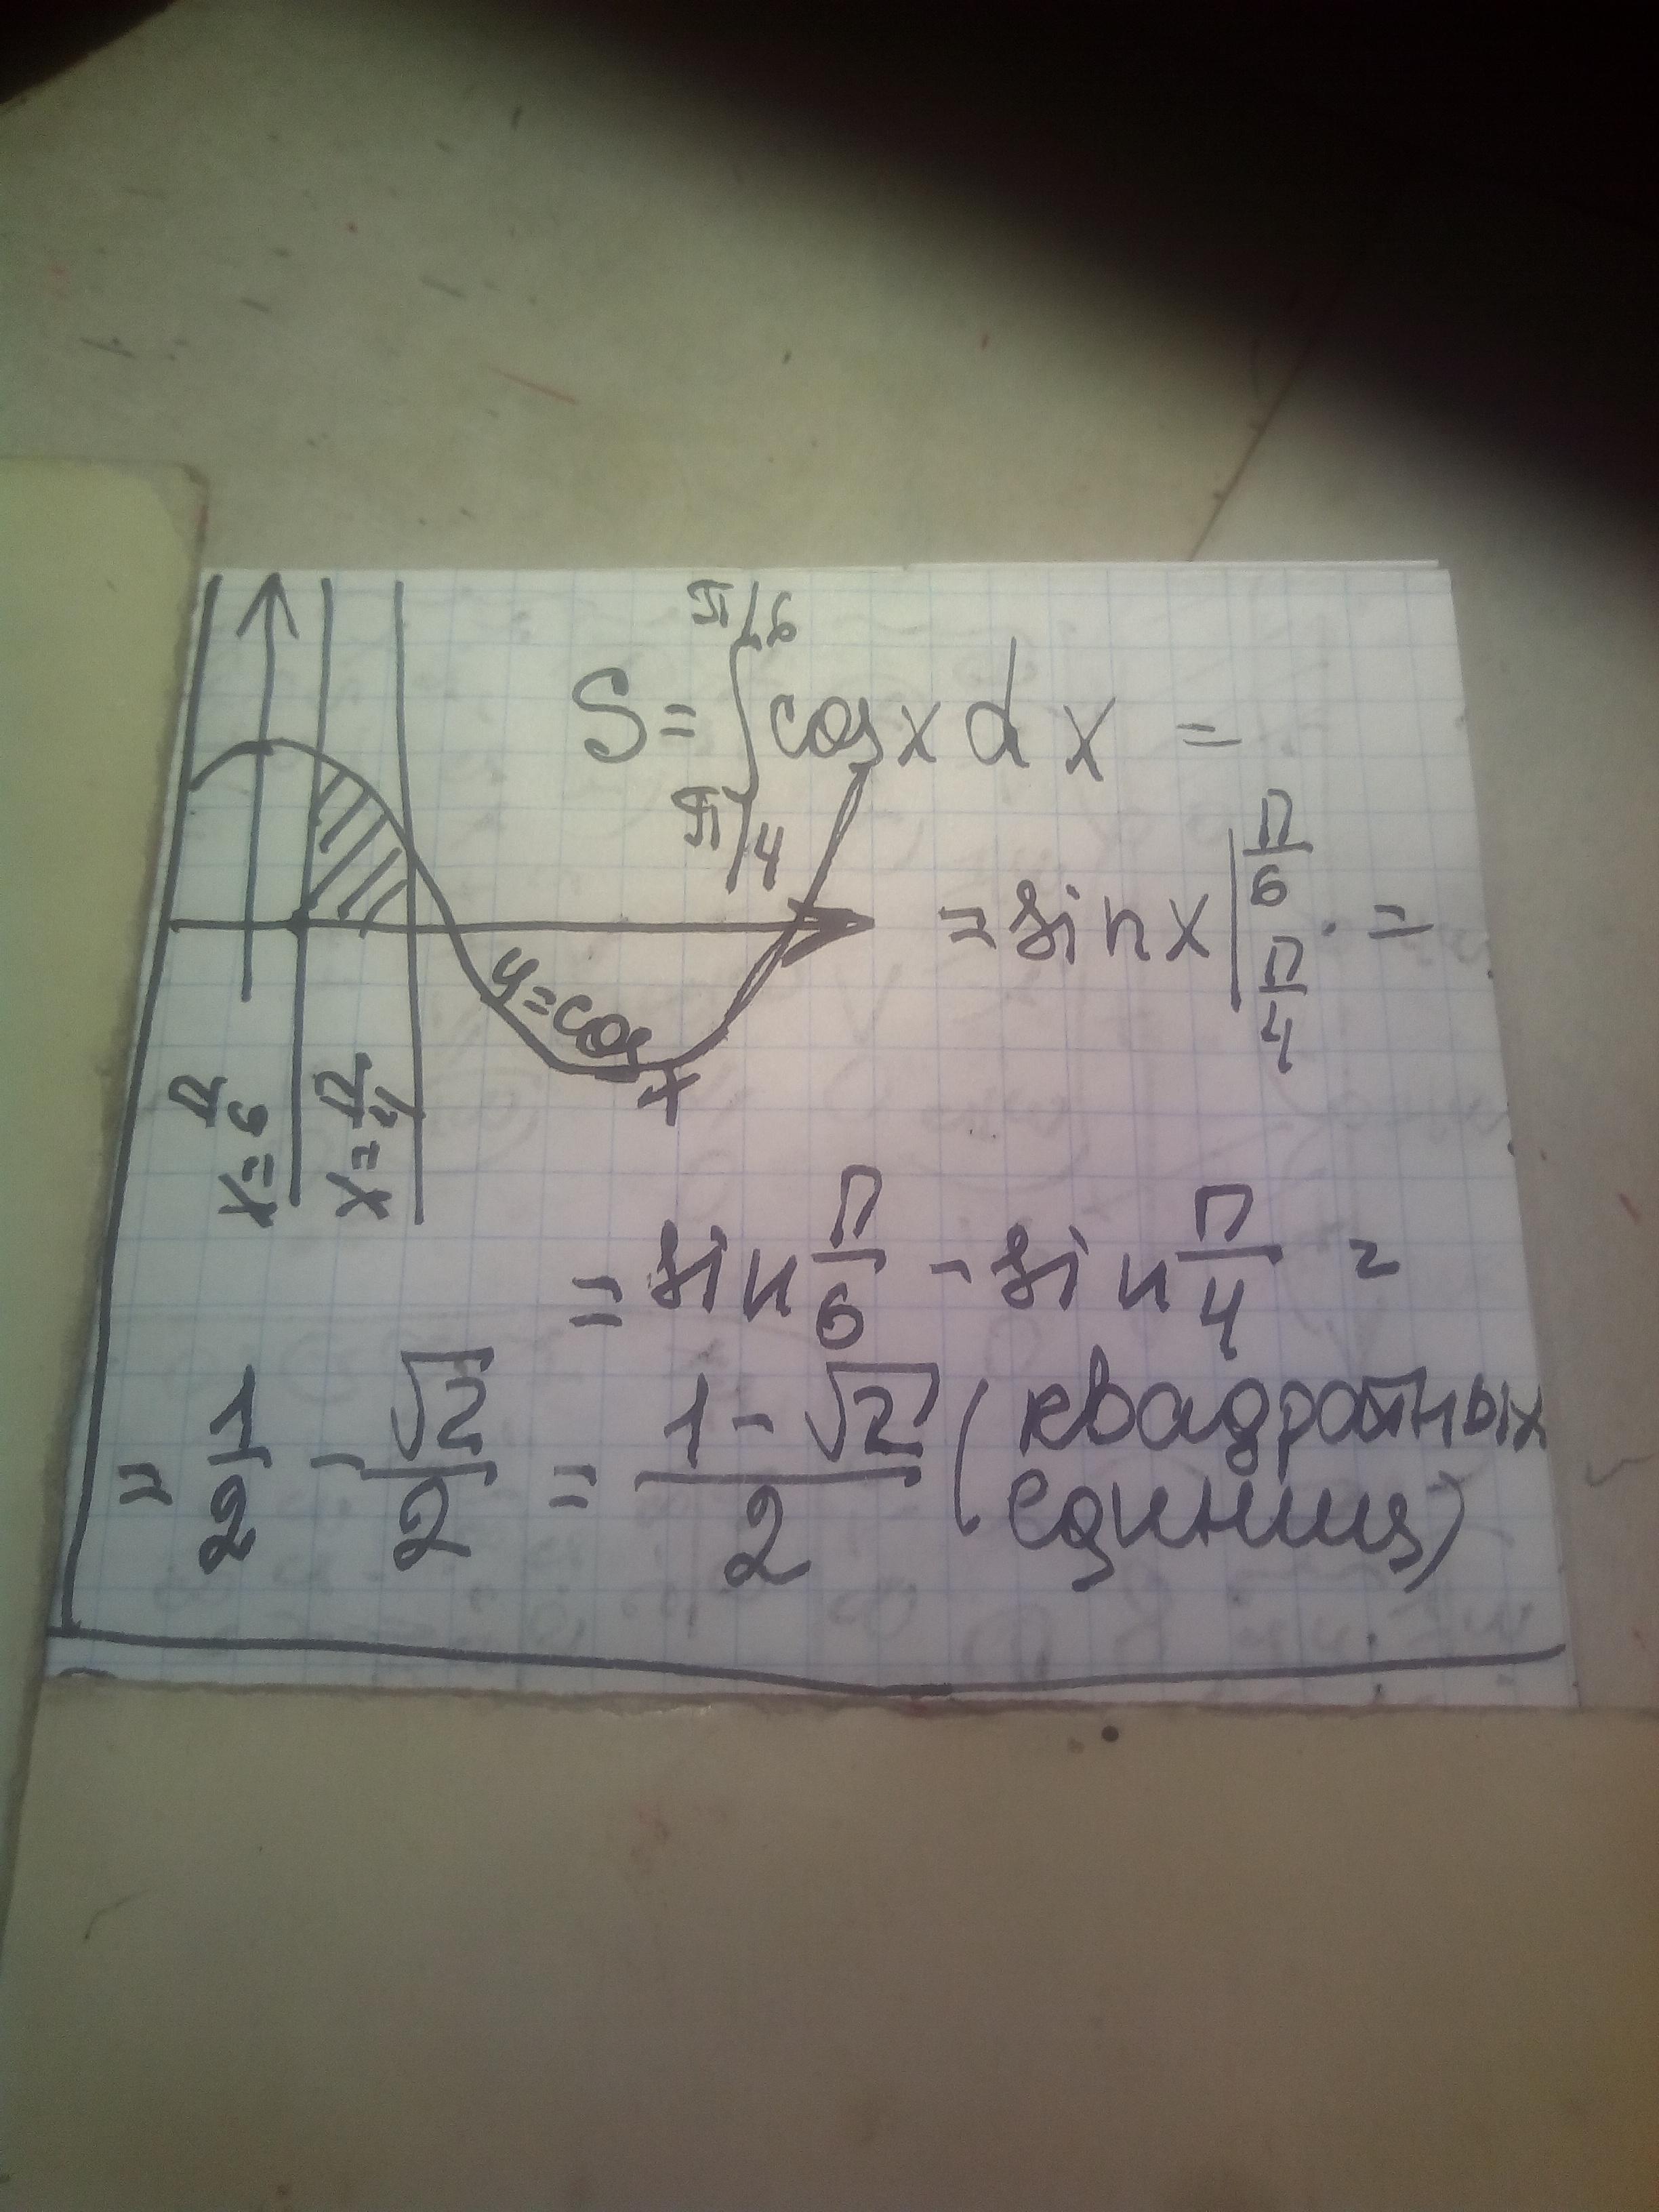 S = ∫_{π/4}^{π/6} cos x d x =
= sin x |_{π/4}^{π/6} =
y = cos x
x = π/6
x = π/4
= sin π/6 - sin π/4 =
= 1/2 - √2/2 = (1 - √2)/2 (квадратных
единиц)